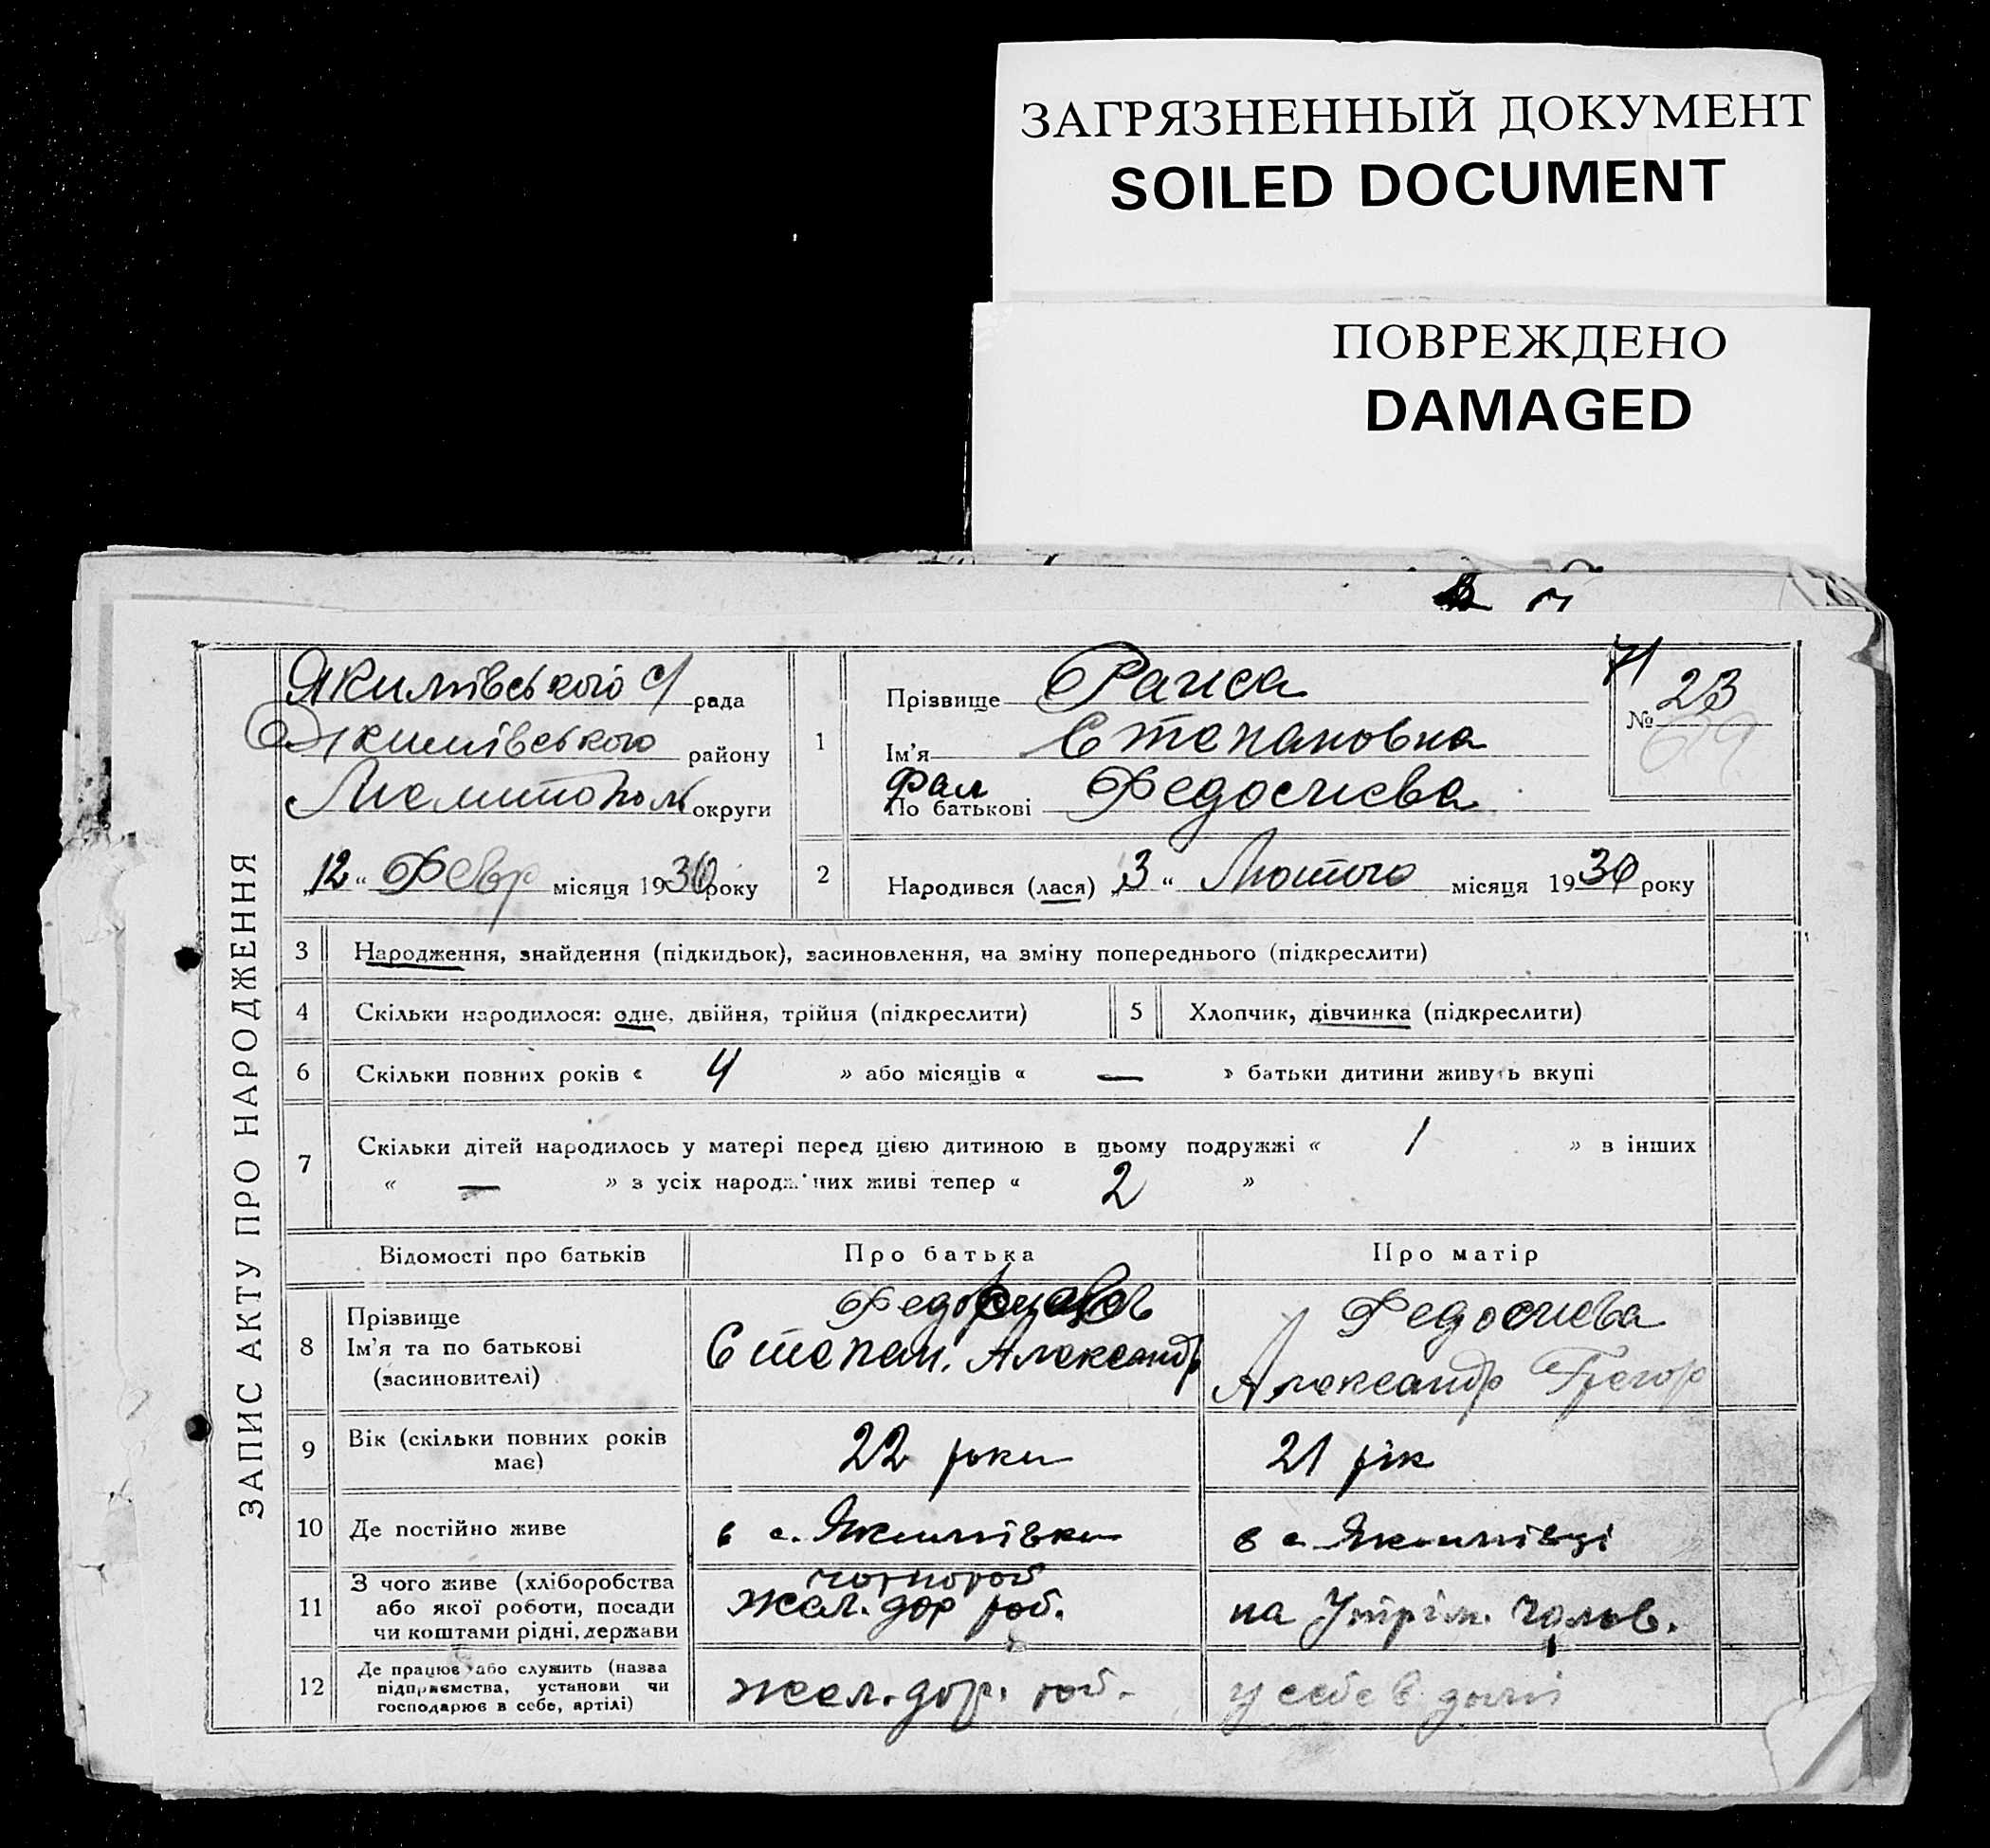 ЗАГРЯЗНЕННЫЙ ДОКУМЕНТ
SOILED DOCUMENT
ПОВРЕЖДЕНО
DAMAGED
ЗАПИС АКТУ ПРО НАРОДЖЕННЯ
Якимівського с/ рада
Якимівського району
Мелитопол округи
„12“ Февр місяця 1930 року
1
Прізвище Раиса
Ім'я Степановна
Фам
По батькові Федосиева
71
№ 23
69
2 Народився (лася) „3“ Лютого місяця 1930 року
3 Народження, знайдення (підкидьок), засиновлення, на зміну попереднього (підкреслити)
4 Скільки народилося: одне, двійня, трійня (підкреслити) 5 Хлопчик, дівчинка (підкреслити)
6 Скільки повних років « 4 » або місяців « — » батьки дитини живуть вкупі
7 Скільки дітей народилось у матері перед цією дитиною в цьому подружжі « 1 » в інших
« — » з усіх народж них живі тепер « 2 »
Відомості про батьків Про батька Про матір
8 Прізвище
Ім'я та по батькові
(засиновителі)
Степан. Александр
Федосиева
Александр Григор
9 Вік (скільки повних років
має)
22 роки 21 рік
10 Де постійно живе в с. Якимівки в с. Якимівці
11 З чого живе (хліборобства
або якої роботи, посади
чи коштами рідні, держави
чорнороб
жел. дор роб. на Утрім. чолов.
12 Де працює або служить (назва
підприємства, установи чи
господарює в себе, артілі)
жел. дор. роб. у себе в домі